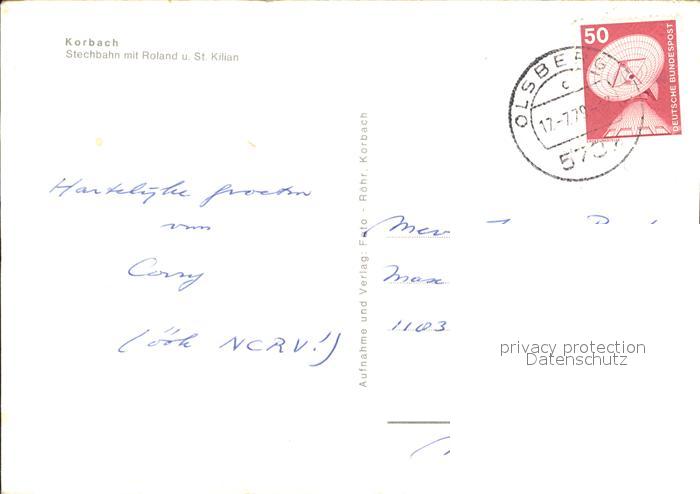 Korbach
Stechbahn mit Roland u. St. Kilian
50
DEUTSCHE BUNDESPOST
OLSBERG
c
17.-7.79
Aufnahme und Verlag: Foto - Röhr, Korbach
Hartelijke groeten
van
Corry
(óók NCRV!)
Mev
Max
1103
privacy protection
Datenschutz